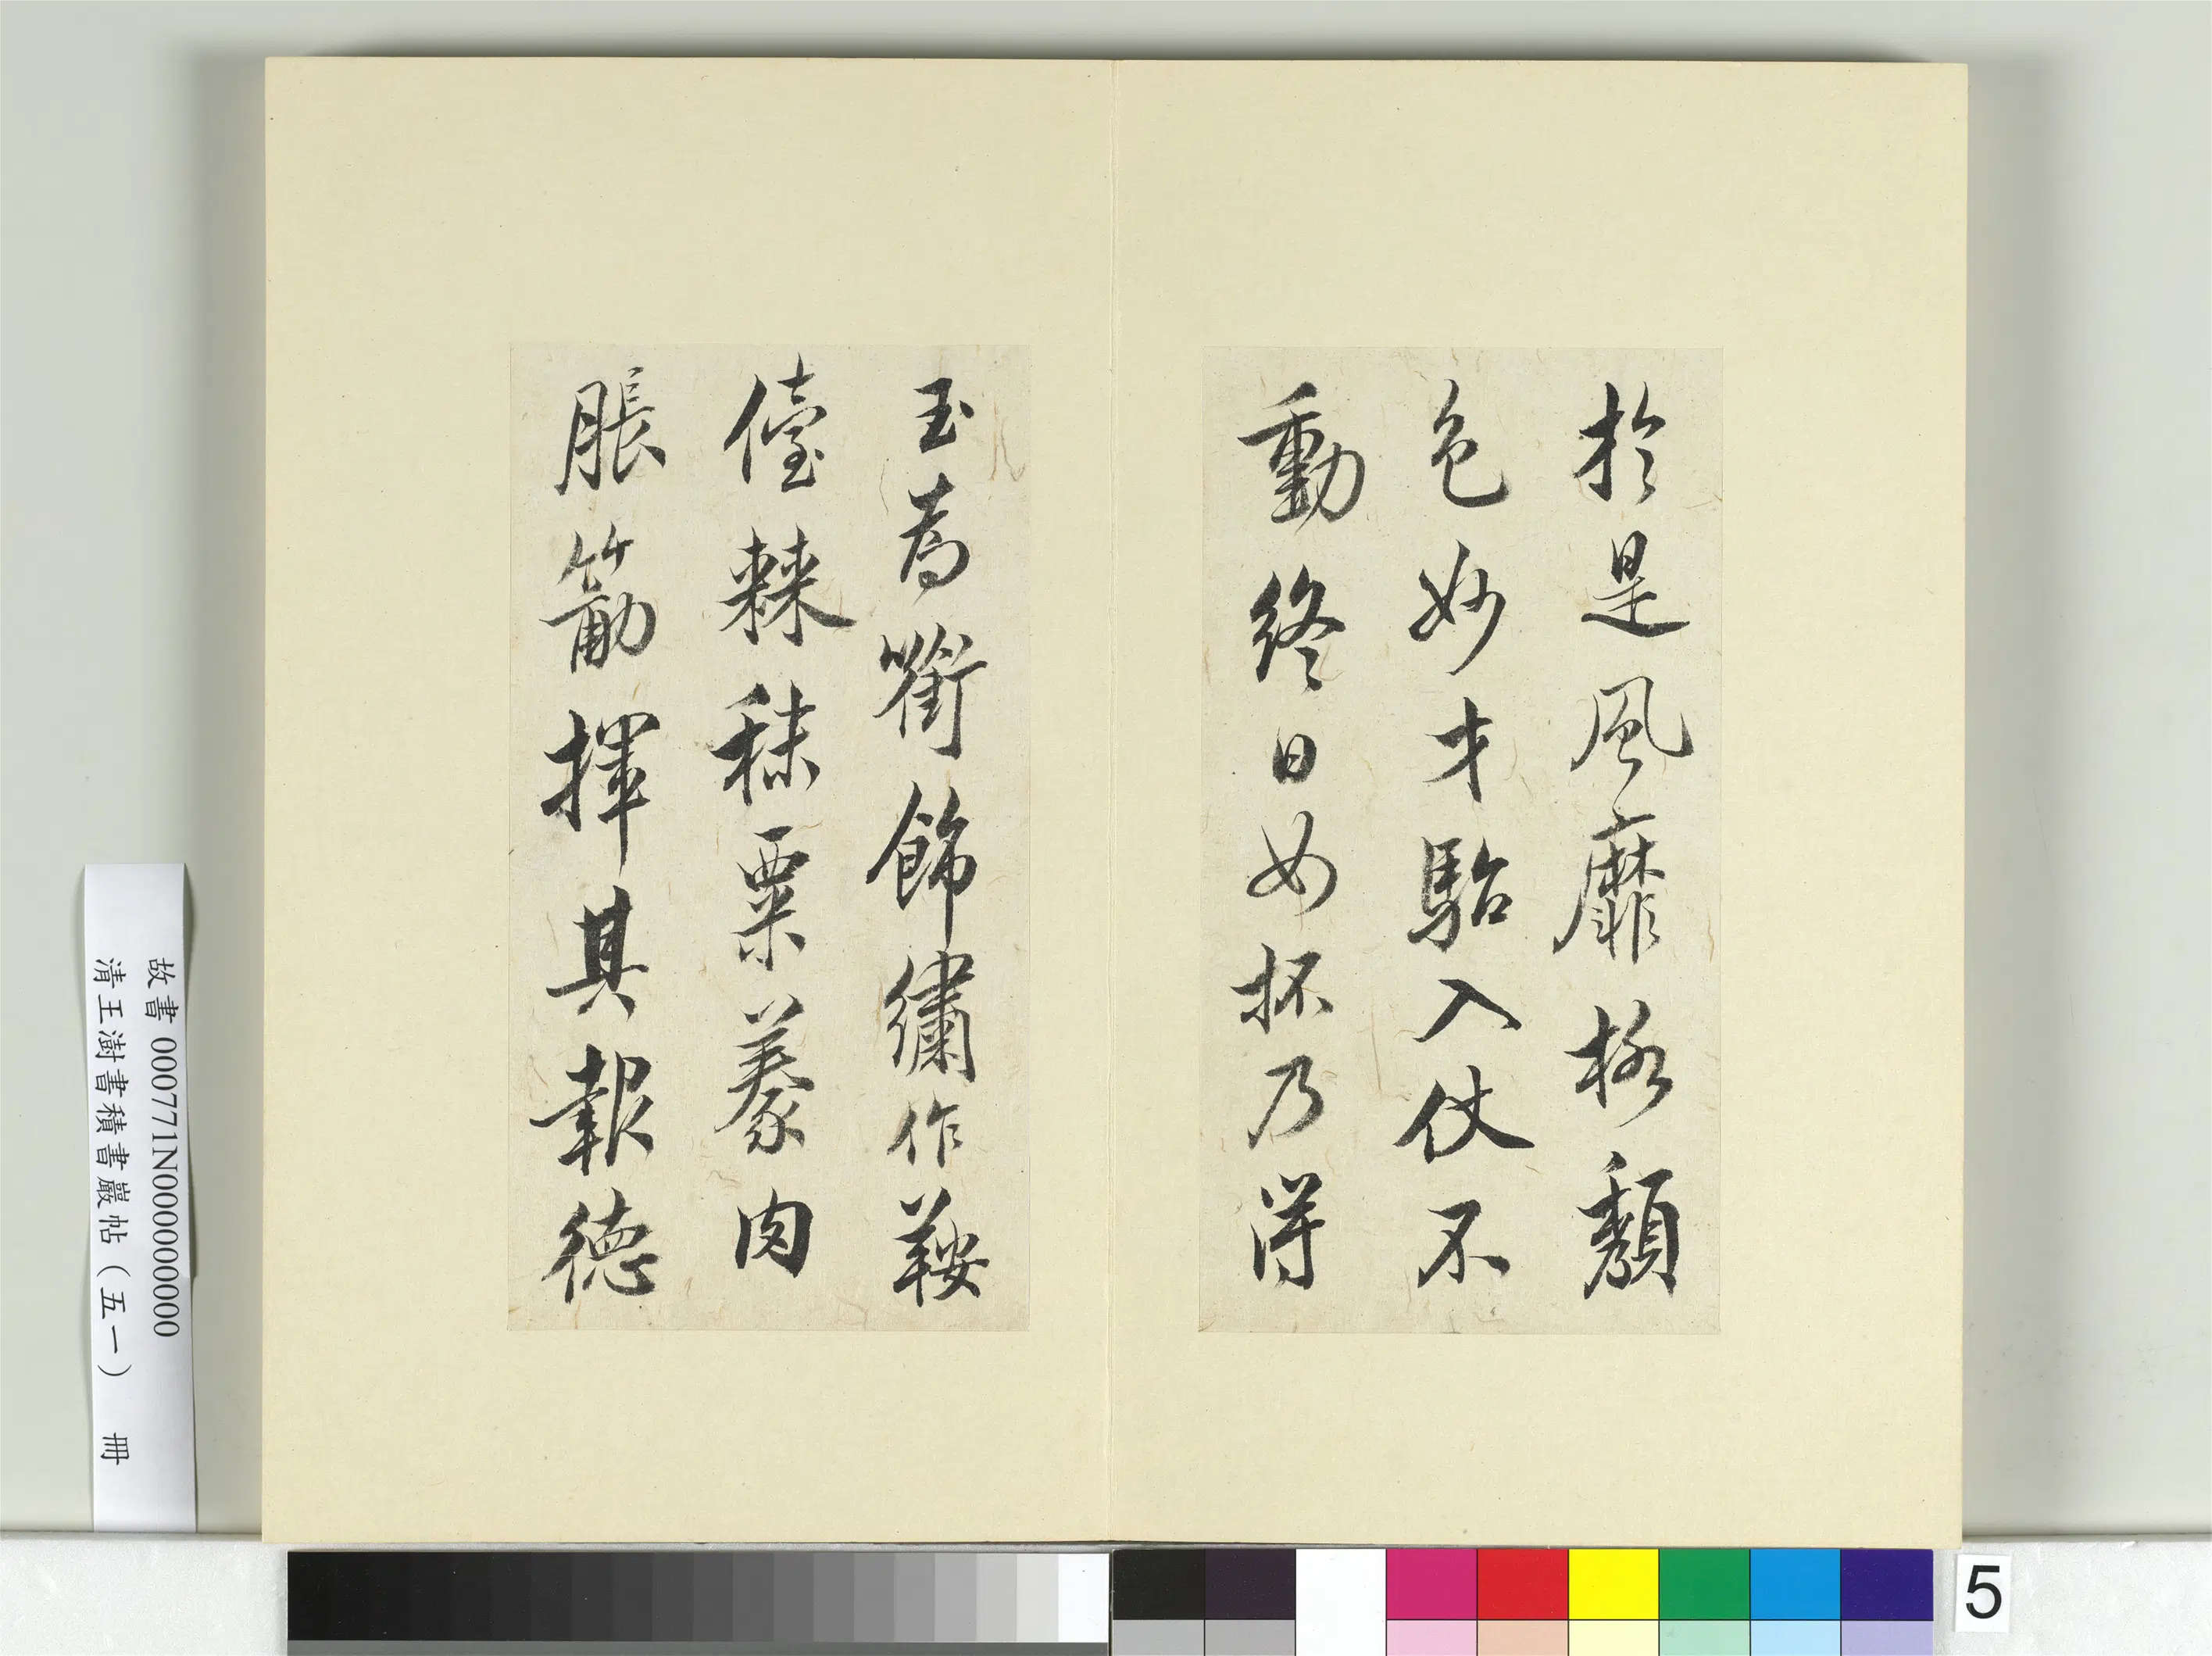 於是風靡格頹
色妙才駘入仗不
動終日如杯乃得
玉為銜飾繡作鞍
儓棘秣粟豢肉
脹筋揮其報德
故書 000771N000000000
清王澍書積書巖帖（五一） 冊
5